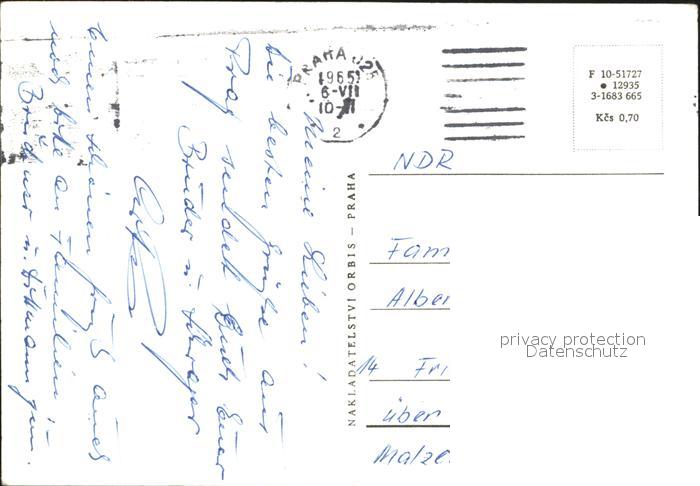 Meine Lieben!
Die besten Grüße aus
Prag sendet Euch Euer
Bruder u. Schwager
Einen schönen Gruß auch
noch bitte an Familien
PRAHA 025
1965
6-VII
10-
2
F 10-51727
● 12935
3-1683 665
Kčs 0,70
NAKLADATELSTVÍ ORBIS – PRAHA
NDR
Fam
Alber
14 Fri
über
Malze
privacy protection
Datenschutz